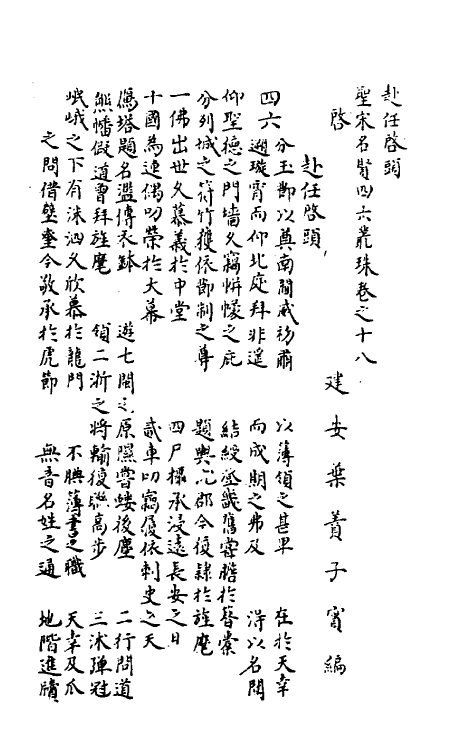 赴任啓頭
聖宋名賢四六叢珠卷之十八
啓 建安葉蕡子實編
赴任啓頭
四六 分玉節以奠南閩威初肅 以薄領之甚卑 在於天幸
遡璇霄而仰北庭拜非遥 而成期之弗及 得以名聞
仰聖德之門墻久竊帡幪之庇 結綬丞畿舊嘗瞻於棠
分列城之符竹獲依節制之尊 題輿郡今復隷於旌麾
一佛出世久慕義於中堂 四承浸遠長安之日
十國為連偶叨榮於大幕 貳車叨竊復依刺史之天
塔題名濫傳衣鉢 遊七閩之原隰嘗後塵 二行問道
熊幡假道曾拜旌麾 領二浙之將輸復聮高步 三沐弾冠
岷峨之下有洙泗久欣慕於龍門 不腆薄書之職 天幸及瓜
之問借壁奎今敬承於虎節 無音名姓之通 地階進牘